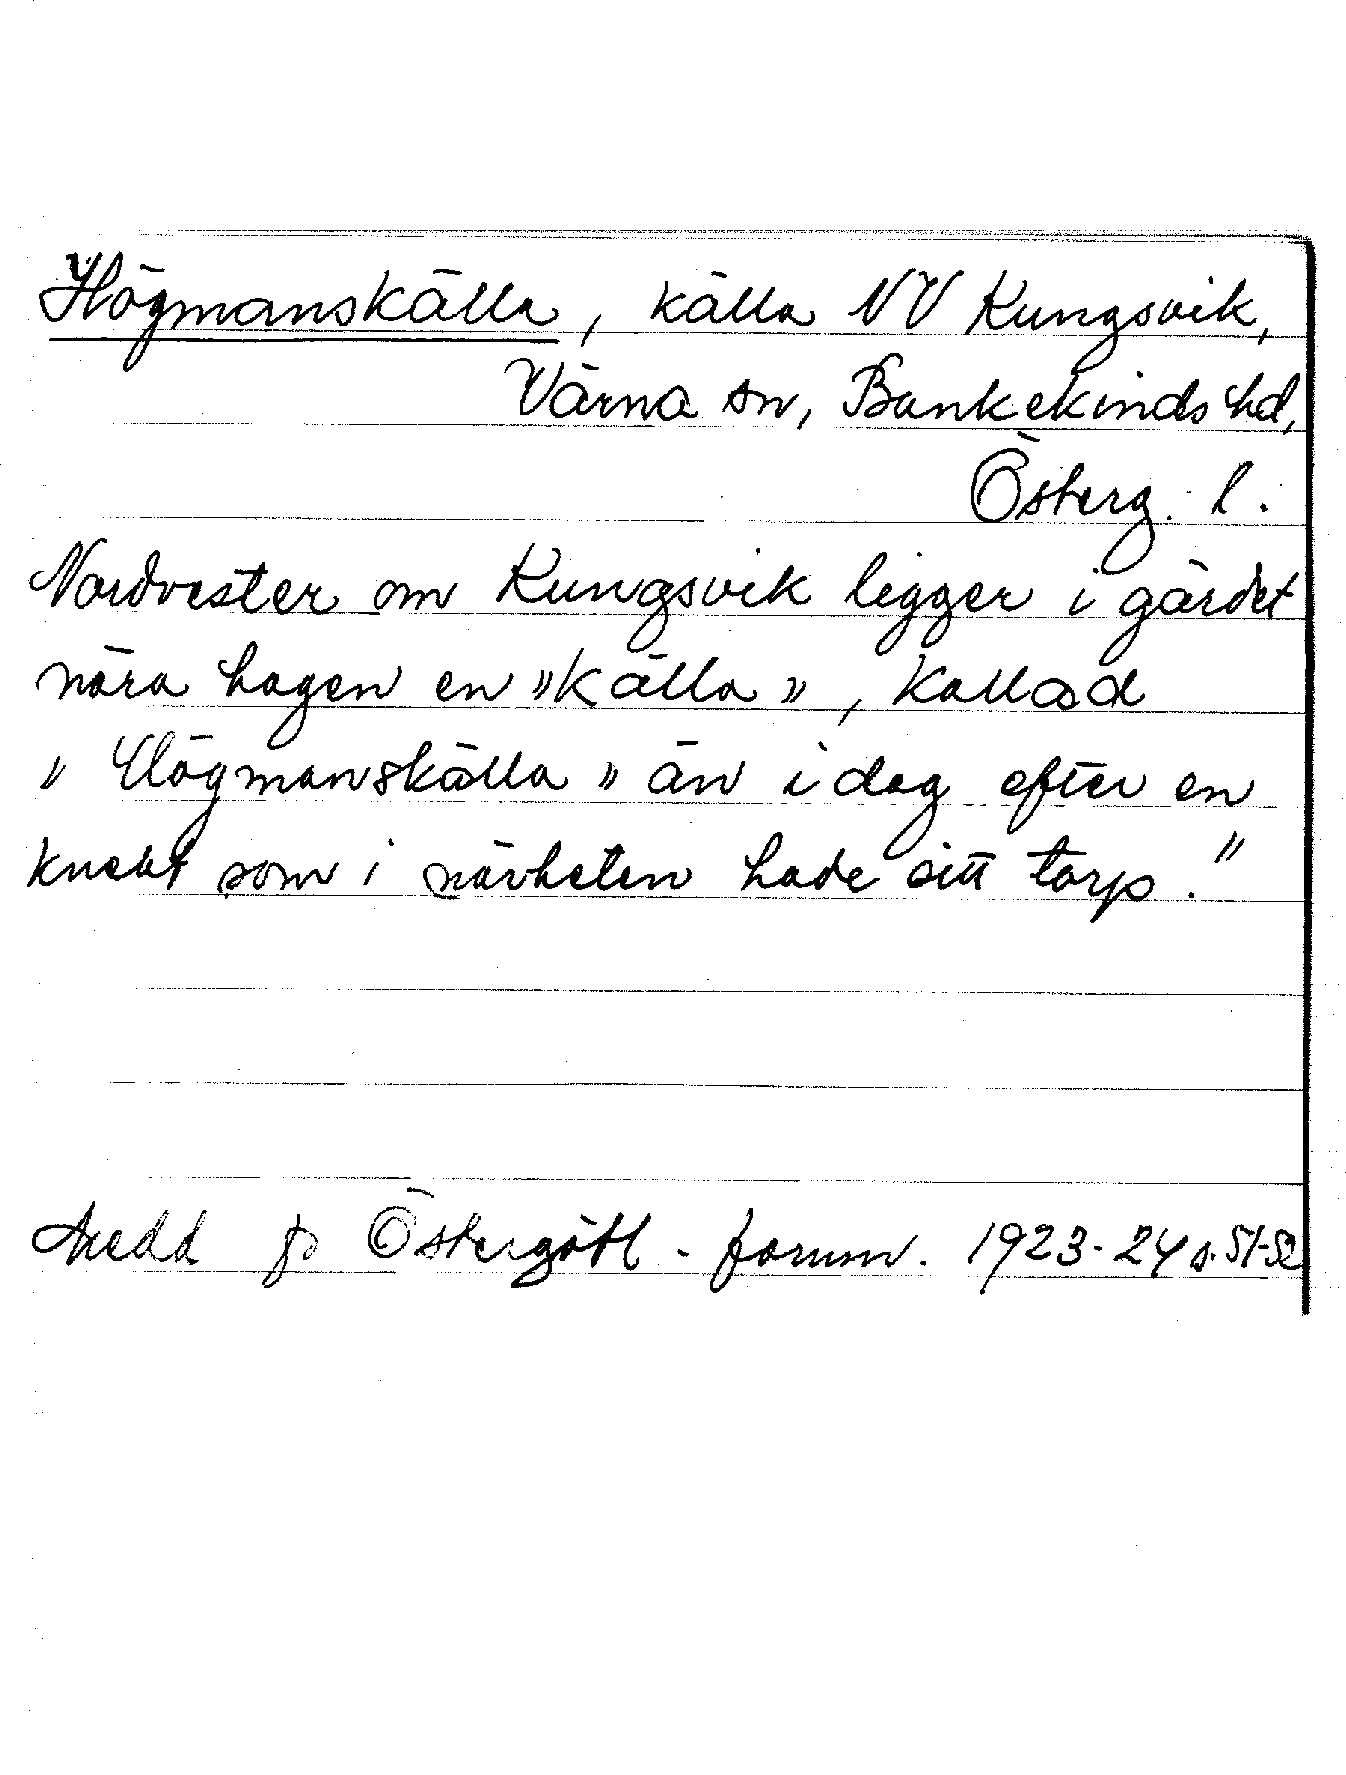 Högmanskälla, källa NV Kungsvik,
Värna sn, Bankekinds hd,
Österg. l.
Nordvester om Kungsvik ligger i gärdet
nära hagen en »källa», kallad
»Högmanskälla» än i dag efter en
knekt som i närheten hade sitt torp."
Medd fr Östergötl - fornm. 1923-24 s. 51-52